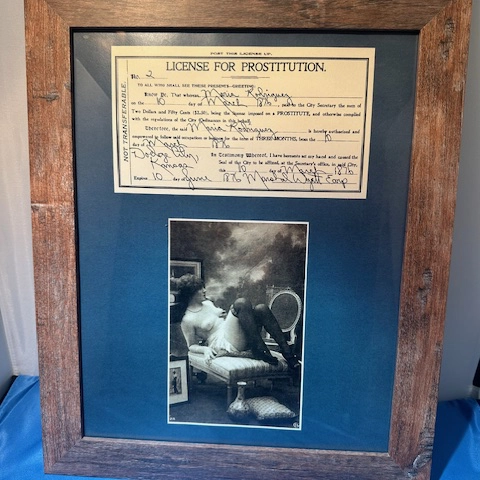 POST THIS LICENSE UP.
LICENSE FOR PROSTITUTION.
No. 2
TO ALL WHO SHALL SEE THESE PRESENTS—GREETING:
Know Ye, That whereas, Maria Rodriguez
on the 10 day of March 1876, paid to the City Secretary the sum of
Two Dollars and Fifty Cents ($2.50), being the license imposed on a PROSTITUTE, and otherwise complied
with the regulations of the City Ordinances in this behalf;
Therefore, the said Maria Rodriguez is hereby authorized and
empowered to follow said occupation or business for the term of THREE MONTHS, from the 10
day of March 1876
Dodge City, Kansas
In Testimony Whereof, I have hereunto set my hand and caused the
Seal of the City to be affixed, at the Secretary's office, in said City,
this 10 day of March 1876
Expires 10 day of June 1876 Marshal Wyatt Earp
NOT TRANSFERABLE.